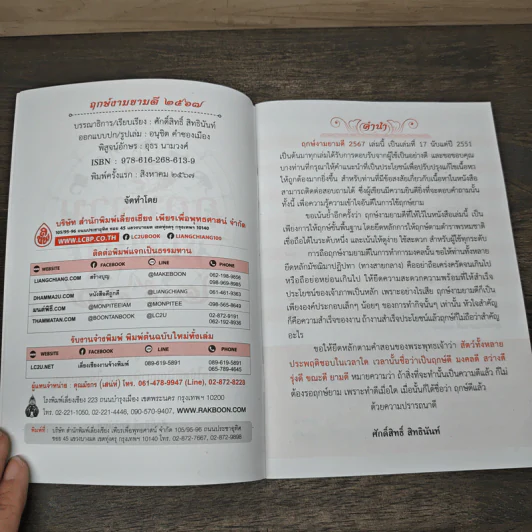 ฤกษ์งามยามดี ๒๕๖๗
บรรณาธิการ/เรียบเรียง : ศักดิ์สิทธิ์ สิทธินันท์
ออกแบบปก/รูปเล่ม : อนุชิต คำซองเมือง
พิสูจน์อักษร : อุธร นามวงศ์
ISBN : 978-616-268-613-9
พิมพ์ครั้งแรก : สิงหาคม ๒๕๖๗
จัดทำโดย
บริษัท สำนักพิมพ์เลี่ยงเชียง เพียรเพื่อพุทธศาสน์ จำกัด
WWW.LCBP.CO.TH LC2UBOOK LIANGCHIANG105
ติดต่อพิมพ์แจกเป็นธรรมทาน
WEBSITE FACEBOOK LINE PHONE
LIANGCHIANG.COM สร้างบุญ @MAKEBOON
DHAMMA2U.COM หนังสือดีถูกดี @LIANGCHIANG
มนต์พิธี.COM @MONPITEEIAM @MONPITEE
THAMMATAN.COM @BOONTANBOOK @LC2U
รับงานจ้างพิมพ์ พิมพ์ต้นฉบับใหม่ทั้งเล่ม
WEBSITE FACEBOOK LINE PHONE
LC2U.NET เลี่ยงเชียงงานจ้างพิมพ์ 089-619-5891 089-619-5891
ผู้แทนจำหน่าย : คุณมังกร (เสน่ห์) โทร. 061-478-9947 (Line), 02-872-8228
โรงพิมพ์เลี่ยงเชียง 223 ถนนบำรุงเมือง เขตพระนคร กรุงเทพฯ 10200
โทร. 02-221-1050, 02-221-4446, 090-570-9407, WWW.RAKBOON.COM
พิมพ์ที่ : บริษัท สำนักพิมพ์เลี่ยงเชียง เพียรเพื่อพุทธศาสน์ จำกัด 105/95-96 ถนนประชาอุทิศ
ซอย 45 แขวงบางมด เขตทุ่งครุ กรุงเทพฯ 10140 โทร. 02-872-7667, 02-872-9898
คำนำ
ฤกษ์งามยามดี 2567 เล่มนี้ เป็นเล่มที่ 17 นับแต่ปี 2551
เป็นต้นมาทุกเล่มได้รับการตอบรับจากผู้ใช้เป็นอย่างดี และขอขอบคุณ
บางท่านที่กรุณาให้คำแนะนำที่เป็นประโยชน์เพื่อปรับปรุงแก้ไขเนื้อหา
ให้ถูกต้องมากยิ่งขึ้น สำหรับท่านที่มีข้อสงสัยเกี่ยวกับเนื้อหาในหนังสือ
สามารถติดต่อสอบถามได้ ซึ่งผู้เขียนมีความยินดียิ่งที่จะตอบคำถามนั้น
ทั้งนี้ เพื่อความรู้ความเข้าใจอันดีในการใช้ฤกษ์ยาม
ขอเน้นย้ำอีกครั้งว่า ฤกษ์งามยามดีที่ให้ไว้ในหนังสือเล่มนี้ เป็น
เพียงการให้ฤกษ์ขั้นพื้นฐาน โดยยึดหลักการให้ฤกษ์ตามตำราพรหมชาติ
เชื่อถือได้ในระดับหนึ่ง และเน้นให้ดูง่าย ใช้สะดวก สำหรับผู้ใช้ทุกระดับ
การถือปฏิบัติฤกษ์งามยามดีในการทำการมงคลนั้น ขอให้ท่านทั้งหลาย
ยึดหลักมัชฌิมาปฏิปทา (ทางสายกลาง) คืออย่าถือเคร่งครัดจนเกินไป
หรือถือย่อหย่อนเกินไป ให้ยึดความสะดวกความพร้อมที่ให้สำเร็จ
ประโยชน์ของเจ้าภาพเป็นหลัก เพราะอย่างไรเสีย ฤกษ์งามยามดีก็เป็น
เพียงองค์ประกอบเล็กๆ น้อยๆ ของการทำกิจนั้นๆ เท่านั้น หัวใจสำคัญ
ก็คือความสำเร็จของงาน ถ้างานสำเร็จประโยชน์แล้วฤกษ์ก็ไม่ถือว่าสำคัญ
อะไร
ขอให้ยึดหลักตามคำสอนของพระพุทธเจ้าว่า สัตว์ทั้งหลาย
ประพฤติชอบในเวลาใด เวลานั้นชื่อว่าเป็นฤกษ์ดี มงคลดี สว่างดี
รุ่งดี ขณะดี ยามดี หมายความว่า ถ้าสิ่งที่จะทำนั้นเป็นความดีแล้ว ก็ไม่
ต้องรอฤกษ์ยาม เพราะทำดีเมื่อใด เมื่อนั้นก็ได้ชื่อว่า ฤกษ์ดีแล้ว
ด้วยความปรารถนาดี
ศักดิ์สิทธิ์ สิทธินันท์